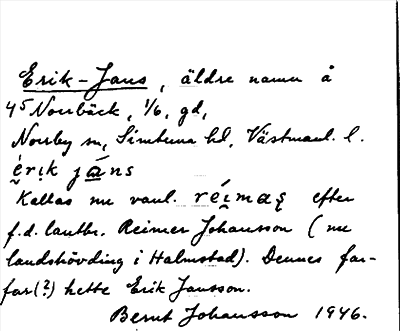 Erik-Jans, äldre namn å
4⁵ Norrbäck, 1/6, gd,
Norrby sn, Simtuna hd, Västmanl. l.
érik jáns
Kallas nu vanl. réimas efter
f.d. lantbr. Reimer Johansson (nu
landshövding i Halmstad). Dennes far-
far(?) hette Erik Jansson.
Bernt Johansson 1946.